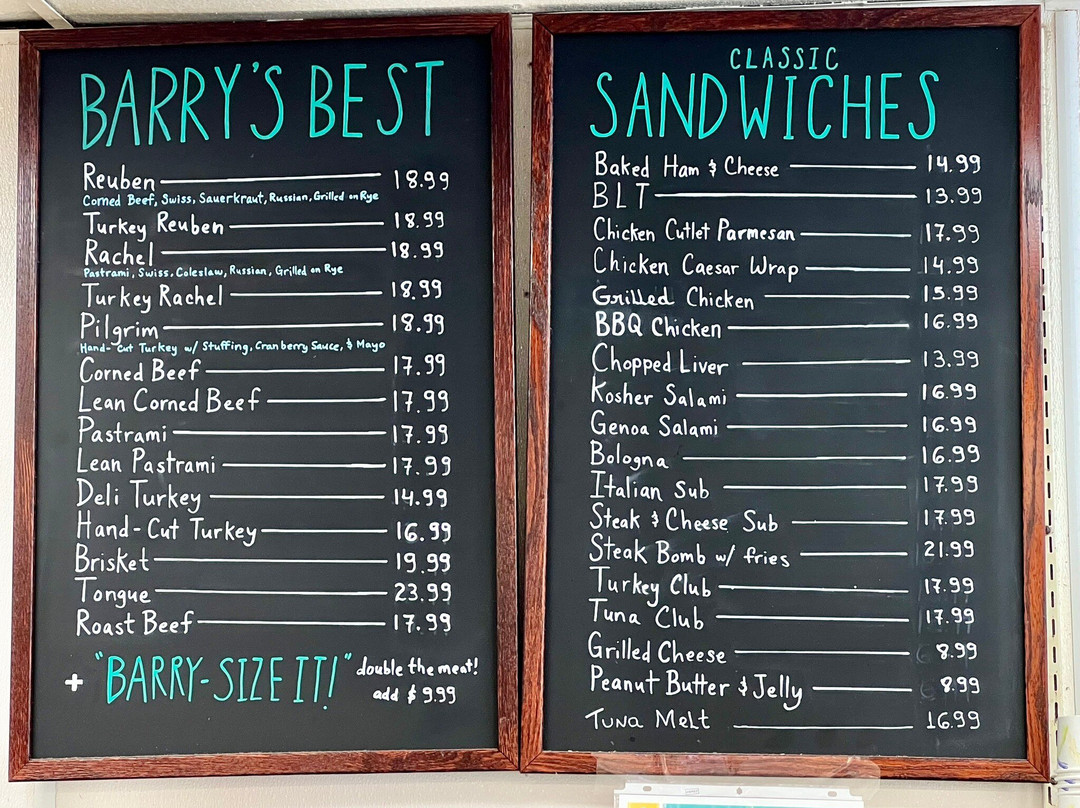 BARRY'S BEST
Reuben 18.99
Corned Beef, Swiss, Sauerkraut, Russian, Grilled on Rye
Turkey Reuben 18.99
Rachel 18.99
Pastrami, Swiss, Coleslaw, Russian, Grilled on Rye
Turkey Rachel 18.99
Pilgrim 18.99
Hand-Cut Turkey w/ Stuffing, Cranberry Sauce, & Mayo
Corned Beef 17.99
Lean Corned Beef 17.99
Pastrami 17.99
Lean Pastrami 17.99
Deli Turkey 14.99
Hand-Cut Turkey 16.99
Brisket 19.99
Tongue 23.99
Roast Beef 17.99
+ "BARRY-SIZE IT!" double the meat!
add $9.99
CLASSIC
SANDWICHES
Baked Ham & Cheese 14.99
BLT 13.99
Chicken Cutlet Parmesan 17.99
Chicken Caesar Wrap 14.99
Grilled Chicken 15.99
BBQ Chicken 16.99
Chopped Liver 13.99
Kosher Salami 16.99
Genoa Salami 16.99
Bologna 16.99
Italian Sub 17.99
Steak & Cheese Sub 17.99
Steak Bomb w/ fries 21.99
Turkey Club 17.99
Tuna Club 17.99
Grilled Cheese 8.99
Peanut Butter & Jelly 8.99
Tuna Melt 16.99